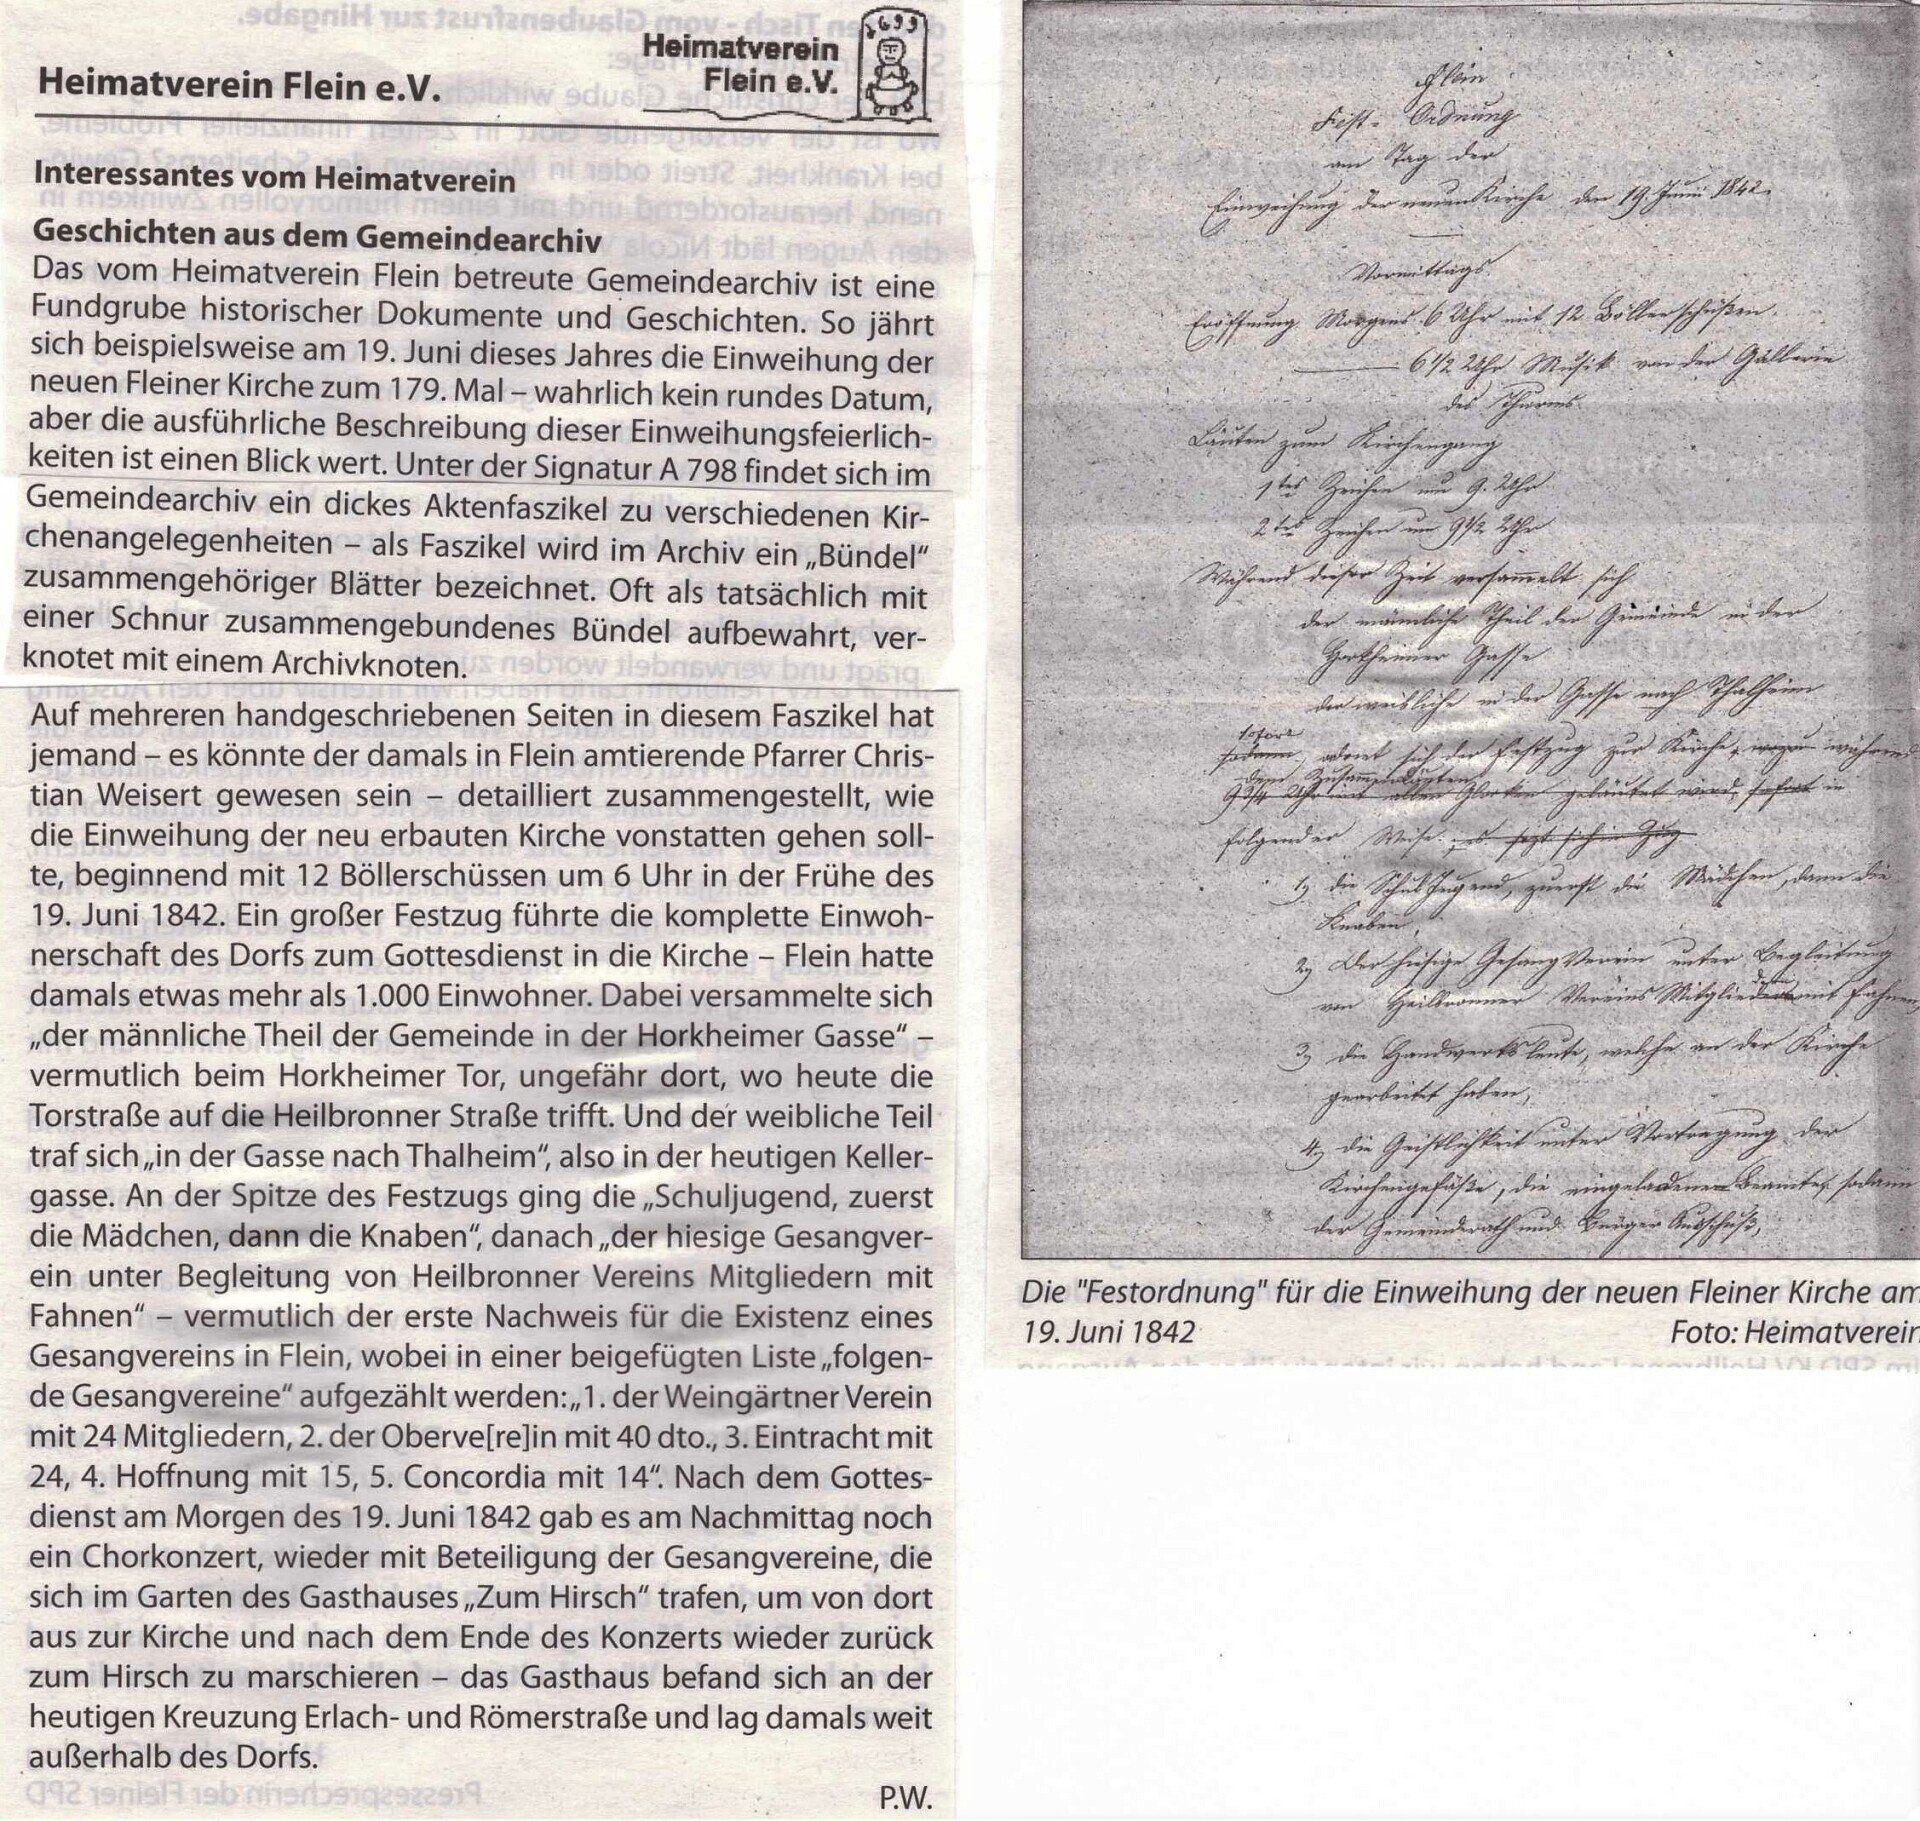 Heimatverein Flein e.V.
Heimatverein
Flein e.V.
1699
Interessantes vom Heimatverein
Geschichten aus dem Gemeindearchiv
Das vom Heimatverein Flein betreute Gemeindearchiv ist eine
Fundgrube historischer Dokumente und Geschichten. So jährt
sich beispielsweise am 19. Juni dieses Jahres die Einweihung der
neuen Fleiner Kirche zum 179. Mal – wahrlich kein rundes Datum,
aber die ausführliche Beschreibung dieser Einweihungsfeierlich-
keiten ist einen Blick wert. Unter der Signatur A 798 findet sich im
Gemeindearchiv ein dickes Aktenfaszikel zu verschiedenen Kir-
chenangelegenheiten – als Faszikel wird im Archiv ein „Bündel“
zusammengehöriger Blätter bezeichnet. Oft als tatsächlich mit
einer Schnur zusammengebundenes Bündel aufbewahrt, ver-
knotet mit einem Archivknoten.
Auf mehreren handgeschriebenen Seiten in diesem Faszikel hat
jemand – es könnte der damals in Flein amtierende Pfarrer Chris-
tian Weisert gewesen sein – detailliert zusammengestellt, wie
die Einweihung der neu erbauten Kirche vonstatten gehen soll-
te, beginnend mit 12 Böllerschüssen um 6 Uhr in der Frühe des
19. Juni 1842. Ein großer Festzug führte die komplette Einwoh-
nerschaft des Dorfs zum Gottesdienst in die Kirche – Flein hatte
damals etwas mehr als 1.000 Einwohner. Dabei versammelte sich
„der männliche Theil der Gemeinde in der Horkheimer Gasse“ –
vermutlich beim Horkheimer Tor, ungefähr dort, wo heute die
Torstraße auf die Heilbronner Straße trifft. Und der weibliche Teil
traf sich „in der Gasse nach Thalheim“, also in der heutigen Keller-
gasse. An der Spitze des Festzugs ging die „Schuljugend, zuerst
die Mädchen, dann die Knaben“, danach „der hiesige Gesangver-
ein unter Begleitung von Heilbronner Vereins Mitgliedern mit
Fahnen“ – vermutlich der erste Nachweis für die Existenz eines
Gesangvereins in Flein, wobei in einer beigefügten Liste „folgen-
de Gesangvereine“ aufgezählt werden: „1. der Weingärtner Verein
mit 24 Mitgliedern, 2. der Oberve[re]in mit 40 dto., 3. Eintracht mit
24, 4. Hoffnung mit 15, 5. Concordia mit 14“. Nach dem Gottes-
dienst am Morgen des 19. Juni 1842 gab es am Nachmittag noch
ein Chorkonzert, wieder mit Beteiligung der Gesangvereine, die
sich im Garten des Gasthauses „Zum Hirsch“ trafen, um von dort
aus zur Kirche und nach dem Ende des Konzerts wieder zurück
zum Hirsch zu marschieren – das Gasthaus befand sich an der
heutigen Kreuzung Erlach- und Römerstraße und lag damals weit
außerhalb des Dorfs.
P.W.
Flein
Fest-Ordnung
am Tag der
Einweihung der neuen Kirche den 19. Juni 1842.
Vormittags.
Eröffnung Morgens 6 Uhr mit 12 Böllerschüßen.
6 1/2 Uhr Musik von der Gallerie
des Thurms.
Läuten zum Kirchengang
1tes Zeichen um 9. Uhr
2tes Zeichen um 9 1/2 Uhr
Während dieser Zeit versammelt sich
der männliche Theil der Gemeinde in der
Horkheimer Gasse
der weibliche in der Gasse nach Thalheim
sofort
sodann, ordnet sich der Festzug zur Kirche, wozu während
dem Zusammenläuten
9 3/4 Uhr mit allen Glocken geläutet wird, sofort in
folgender Weise: es sezt sich in Zug
1, die Schul Jugend, zuerst die Mädchen, dann die
Knaben,
2, Der hiesige Gesang Verein unter Begleitung
von Heilbronner Vereins Mitgliedern mit Fahnen,
3, die Handwerksleute, welche an der Kirche
gearbeitet haben,
4, die Geistlichkeit unter Vortragung der
Kirchengefäße, die eingeladenen Beamte, sodann
der Gemeinderath und Bürger Ausschuß,
Die "Festordnung" für die Einweihung der neuen Fleiner Kirche am
19. Juni 1842 Foto: Heimatverein